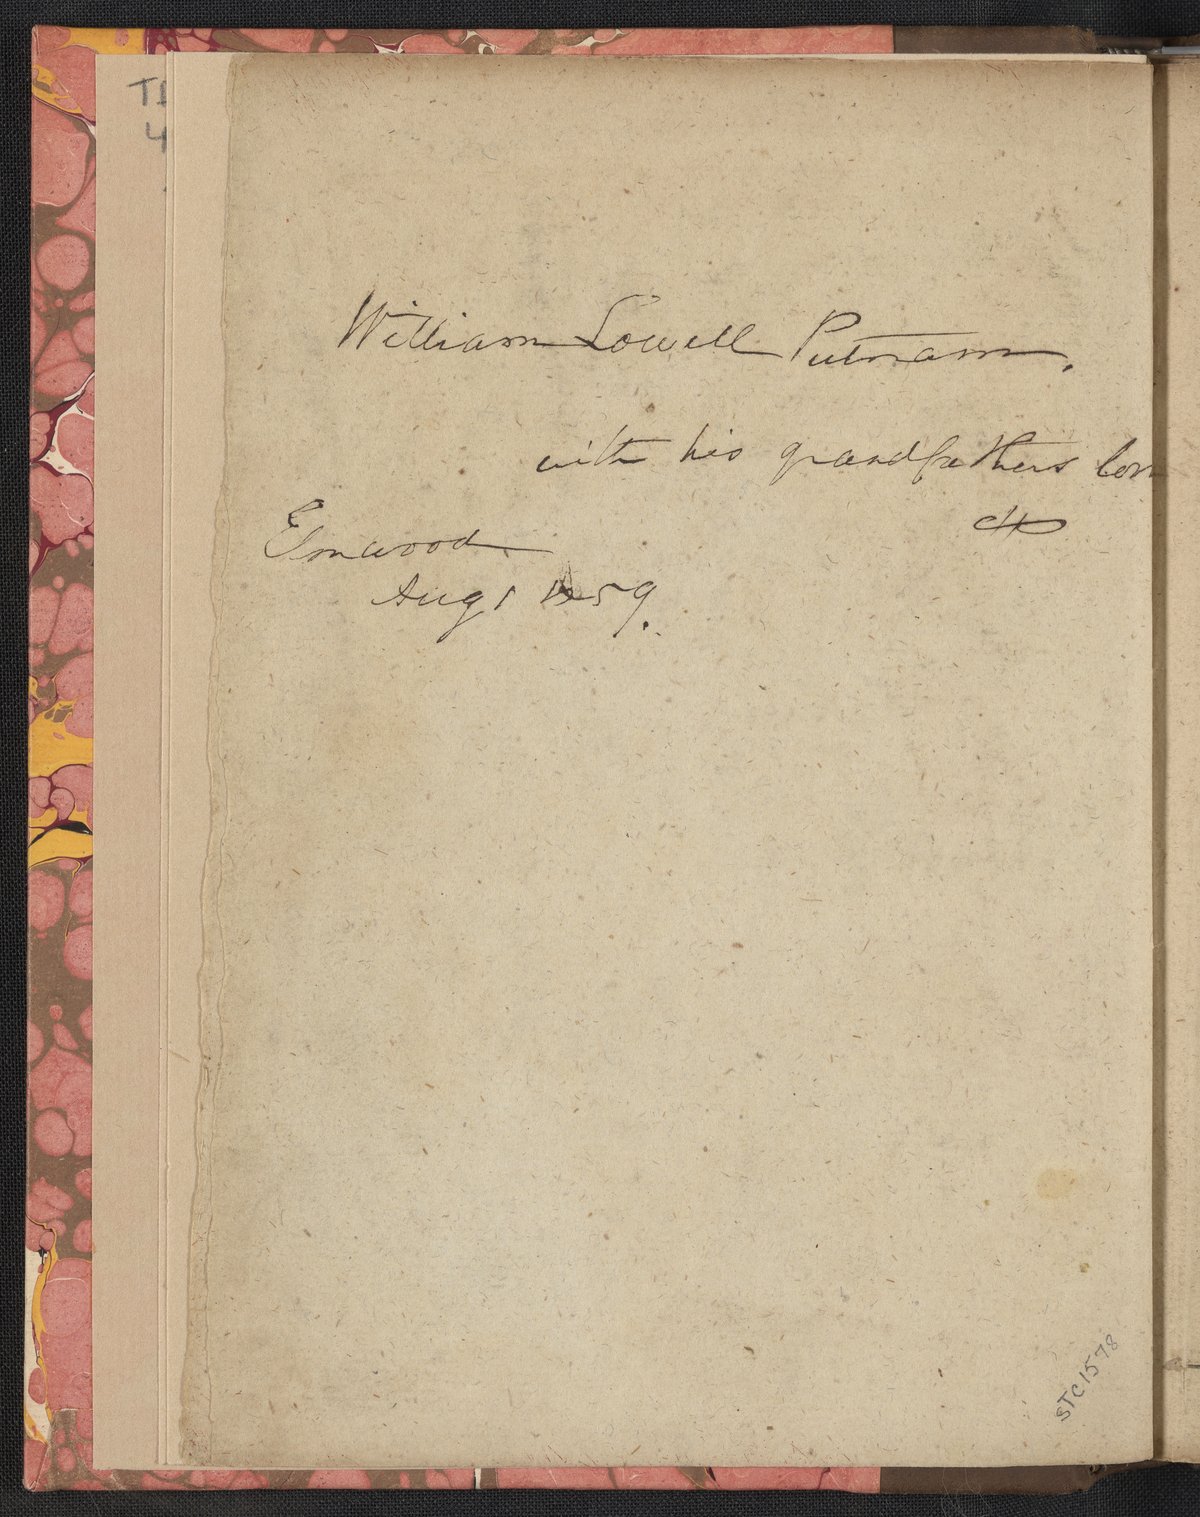 William Lowell Putnam.
with his grandfathers love
Elmwood
Aug 1 1859.
STC 1578